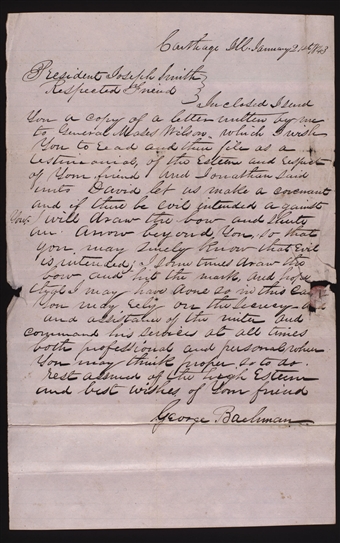 Carthage Ill. January 2 1843
President Joseph Smith
Respected Friend
Inclosed I send
You a copy of a letter written by me
to General Moses Wilson, which I wish
You to Read and then file as a
testimonial, of the Esteem and respect
of Your friend And Jonathan said
unto David let us make a covenant
and if there be evil intended against
thee I will draw the bow and shute
an arrow beyond You, so that
you may surely know that Evil
is intended; I some times draw the
bow and hit the mark, and hope
that I may have done so in this Case
You may rely on the Secrecy
and assistance of the writer and
command his services at all times
both professional and personal when
You may think proper so to do.
rest assured of the high Esteem
and best wishes of Your friend
George Bachman